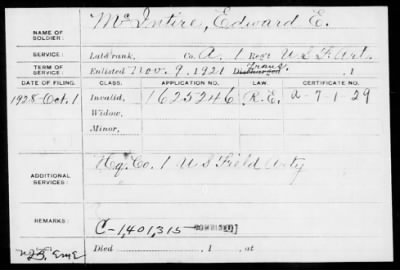 NAME OF SOLDIER: McIntire, Edward E.
SERVICE: Late rank, Co. A. 1 Reg't U S F. Art.
TERM OF SERVICE: Enlisted Nov. 9, 1921 Discharged Trans., 1
DATE OF FILING. CLASS. APPLICATION NO. LAW. CERTIFICATE NO.
1928-Oct. 1 Invalid, 1625246 R.E. a-7-1-29
Widow,
Minor,
ADDITIONAL SERVICES: Hq. Co. 1 U S Field Arty
REMARKS: C-1,401,315
Died , 1 , at